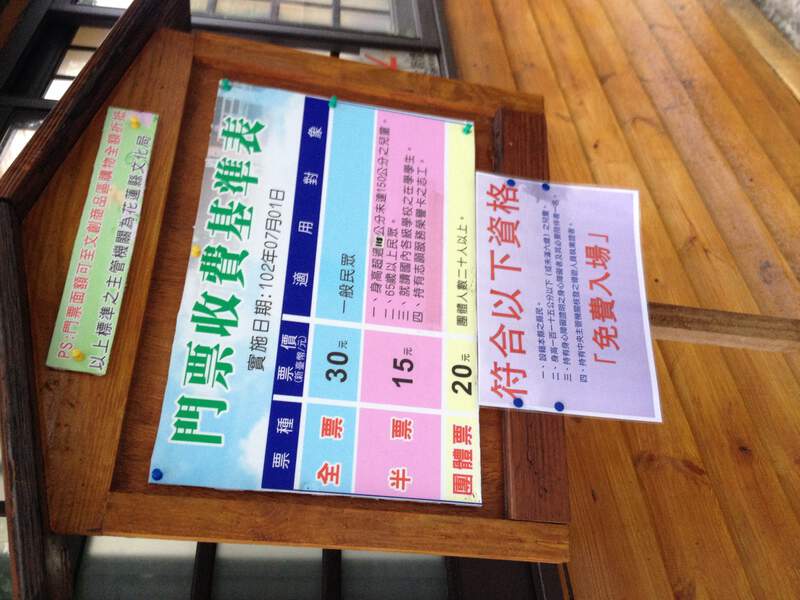 PS:門票面額可至文創商品區購物全額折抵
以上標準之主管機關為花蓮縣文化局
門票收費基準表
實施日期:102年07月01日
票種 票價(新臺幣/元) 適用對象
全票 30元 一般民眾
半票 15元 一、身高超過115公分未達150公分之兒童。
二、65歲以上民眾。
三、就讀國內各級學校之在學學生。
四、持有志願服務榮譽卡之志工。
團體票 20元 團體人數二十人以上。
符合以下資格
一、設籍本縣之縣民。
二、身高一百一十五公分以下（或未滿六歲）之兒童。
三、持有身心障礙證明之身心障礙者及其必要陪伴者一名。
四、持有中央主管機關核發之導遊人員執業證者。
「免費入場」